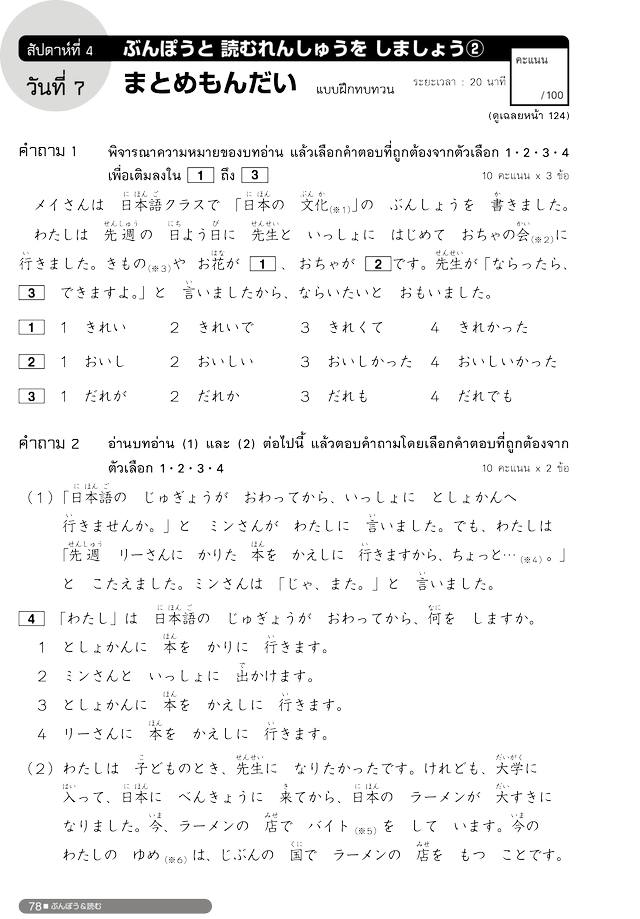 สัปดาห์ที่ 4
วันที่ 7
ぶんぽうと 読むれんしゅうを しましょう②
まとめもんだい แบบฝึกทบทวน ระยะเวลา : 20 นาที
คะแนน
/100
(ดูเฉลยหน้า 124)
คำถาม 1 พิจารณาความหมายของบทอ่าน แล้วเลือกคำตอบที่ถูกต้องจากตัวเลือก 1・2・3・4
เพื่อเติมลงใน 1 ถึง 3 10 คะแนน x 3 ข้อ
メイさんは 日本語クラスで 「日本の 文化(※1)」の ぶんしょうを 書きました。
わたしは 先週の 日よう日に 先生と いっしょに はじめて おちゃの会(※2)に
行きました。きもの(※3)や お花が 1 、おちゃが 2 です。先生が「ならったら、
3 できますよ。」と 言いましたから、ならいたいと おもいました。
1 1 きれい 2 きれいで 3 きれくて 4 きれかった
2 1 おいし 2 おいしい 3 おいしかった 4 おいしいかった
3 1 だれが 2 だれか 3 だれも 4 だれでも
คำถาม 2 อ่านบทอ่าน (1) และ (2) ต่อไปนี้ แล้วตอบคำถามโดยเลือกคำตอบที่ถูกต้องจาก
ตัวเลือก 1・2・3・4 10 คะแนน x 2 ข้อ
(1)「日本語の じゅぎょうが おわってから、いっしょに としょかんへ
行きませんか。」と ミンさんが わたしに 言いました。でも、わたしは
「先週 リーさんに かりた 本を かえしに 行きますから、ちょっと…(※4)。」
と こたえました。ミンさんは 「じゃ、また。」と 言いました。
4 「わたし」は 日本語の じゅぎょうが おわってから、何を しますか。
1 としょかんに 本を かりに 行きます。
2 ミンさんと いっしょに 出かけます。
3 としょかんに 本を かえしに 行きます。
4 リーさんに 本を かえしに 行きます。
(2)わたしは 子どものとき、先生に なりたかったです。けれども、大学に
入って、日本に べんきょうに 来てから、日本の ラーメンが 大すきに
なりました。今、ラーメンの 店で バイト(※5)を して います。今の
わたしの ゆめ(※6)は、じぶんの 国で ラーメンの 店を もつ ことです。
78■ぶんぽう&読む